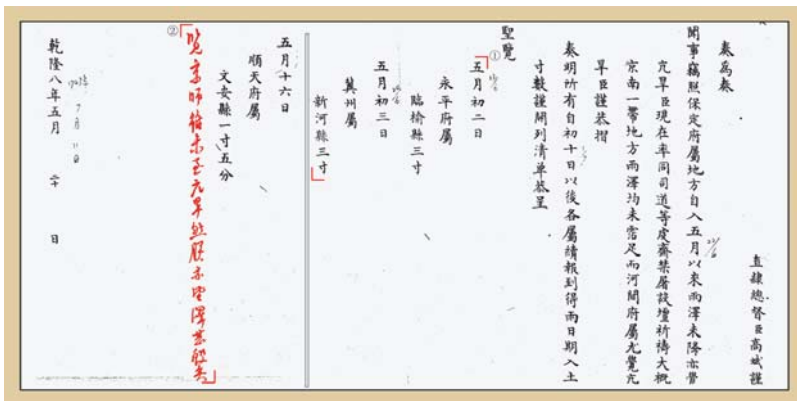 直隸總督臣高斌謹
奏為奏
聞事竊照保定府屬地方自入五月以來雨澤未降亦覺
亢旱臣現在率同司道等虔齋禁屠設壇祈禱大概
京南一帶地方雨澤均未霑足而河間府屬尤覺亢
旱臣謹恭摺
奏明所有自初十日以後各屬續報到得雨日期入土
寸數謹開列清單恭呈
聖覽
①
五月初二日
永平府屬
臨榆縣三寸
五月初三日
冀州屬
新河縣三寸
五月十六日
順天府屬
文安縣一寸五分
②
覽京師猶未至亢旱然朕亦望澤甚殷矣
乾隆八年五月 二十 日
7月11日